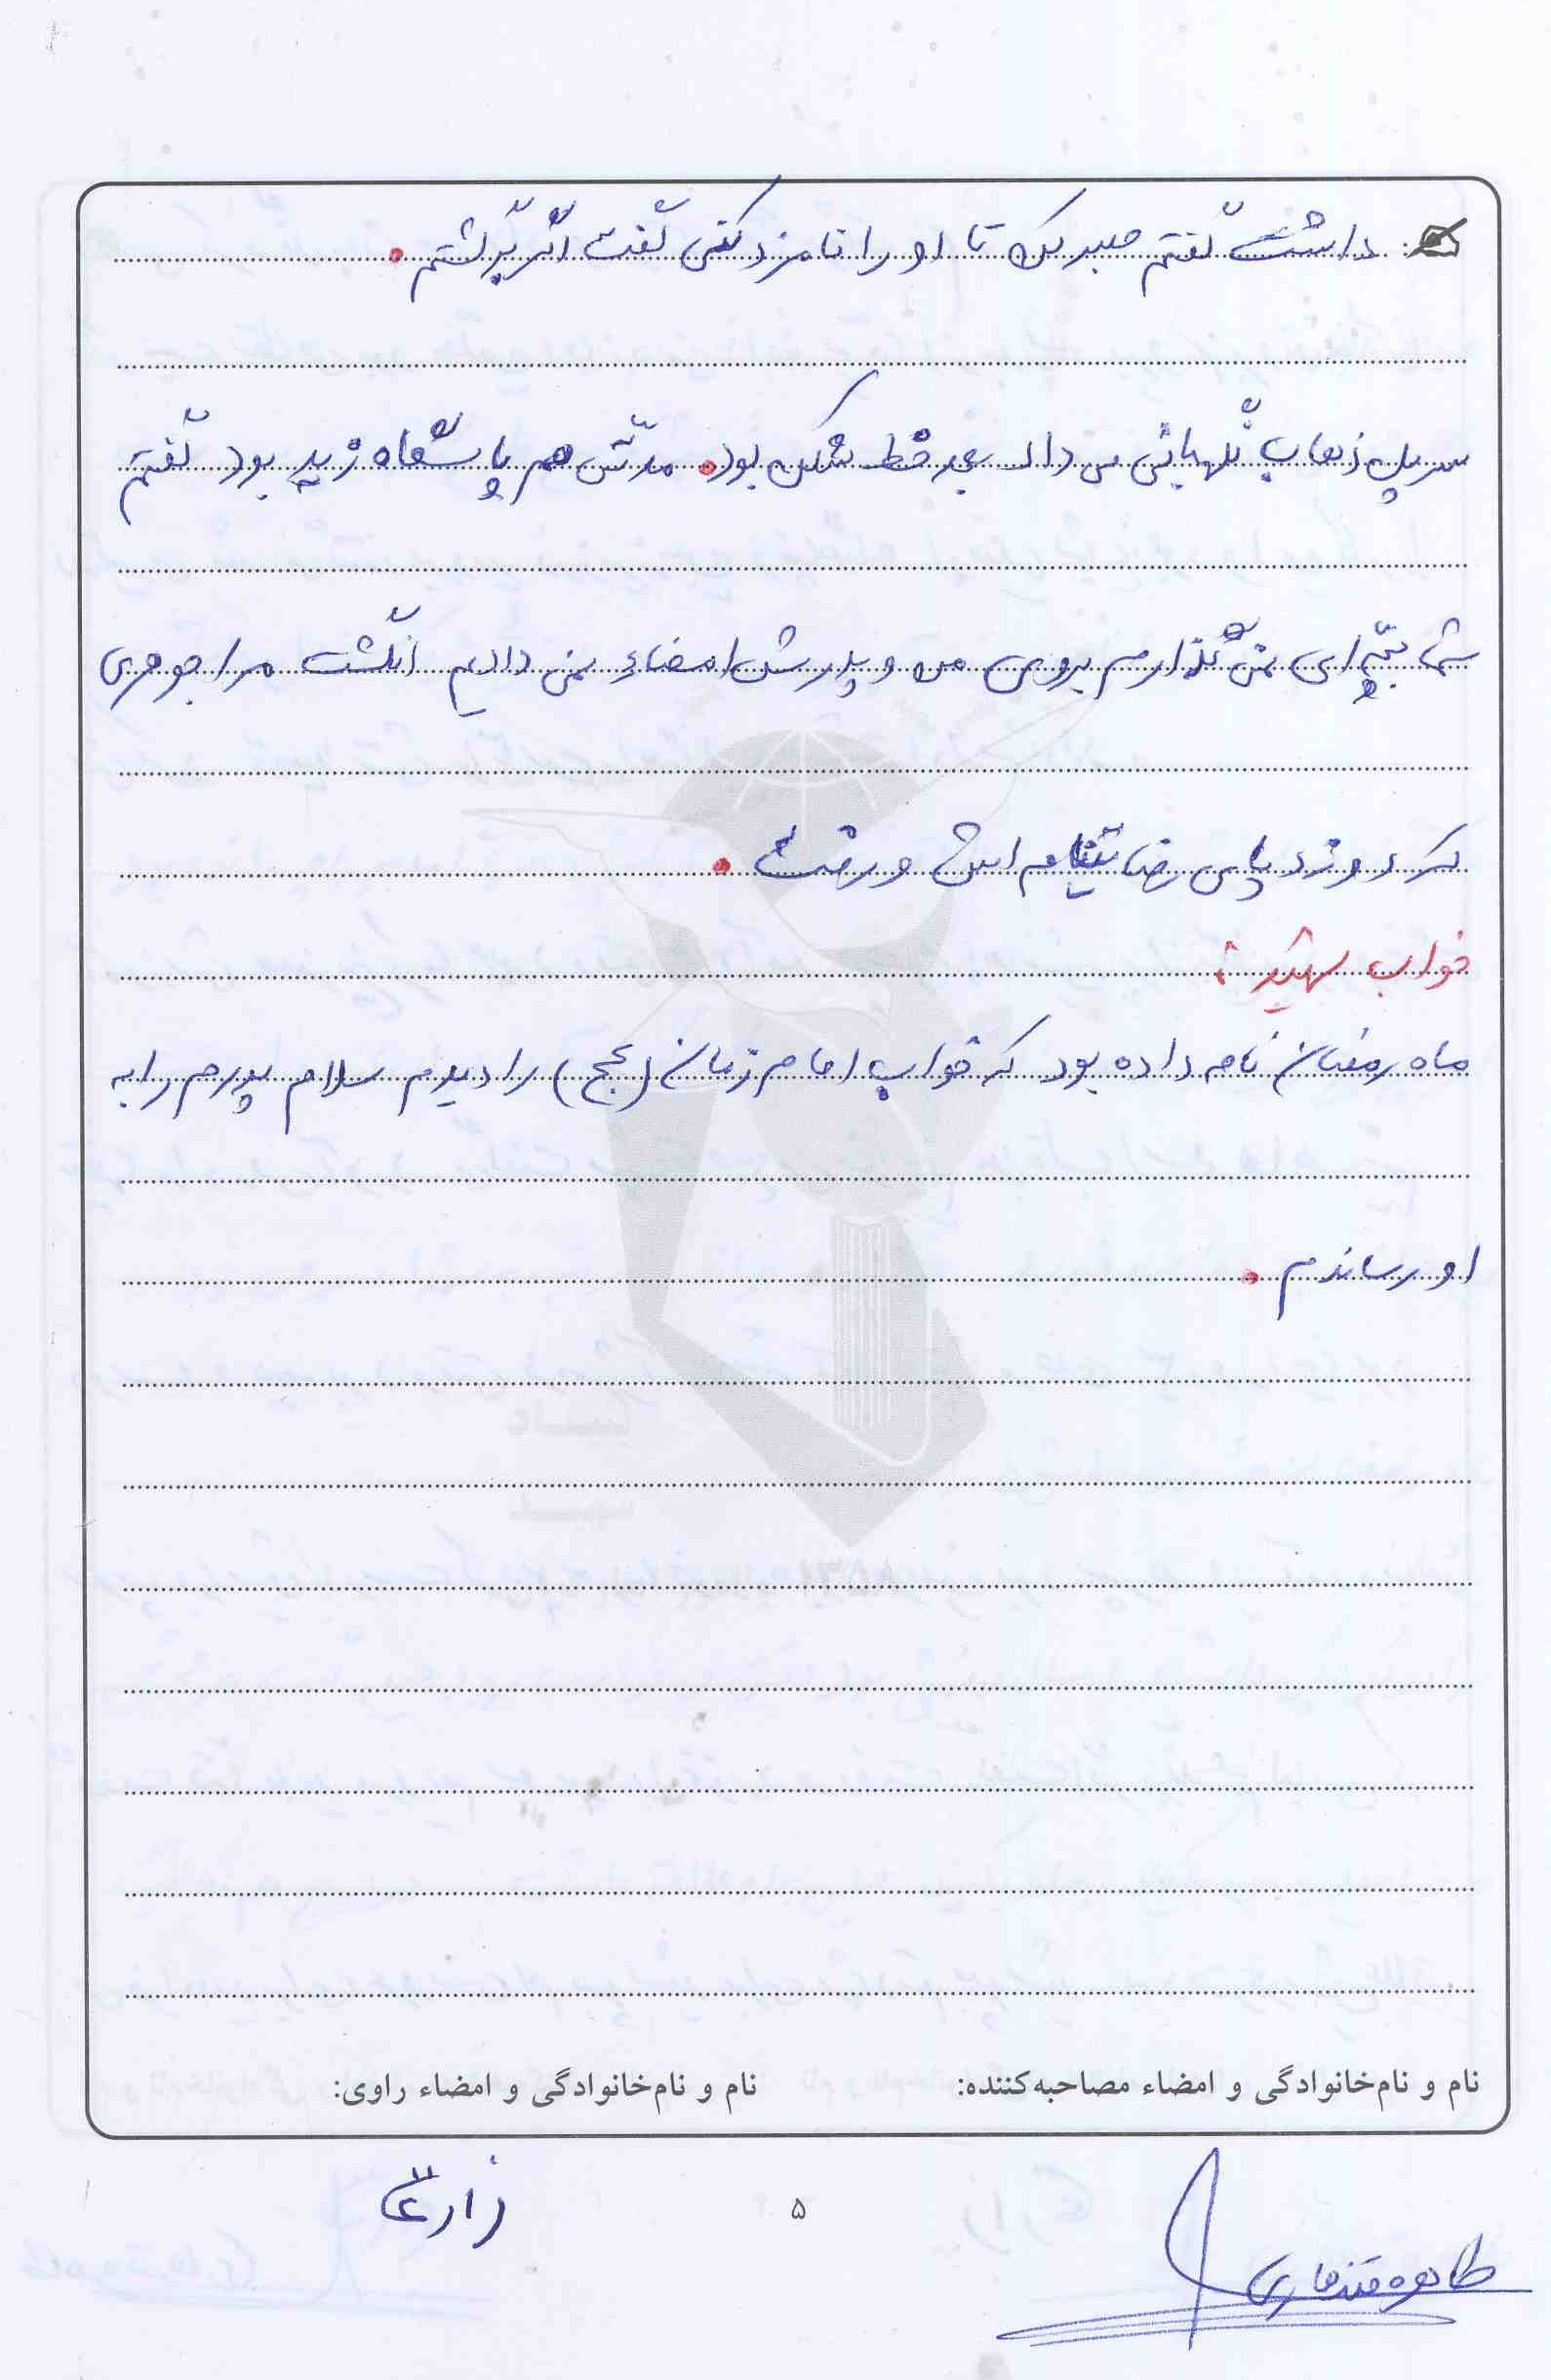 داشت گفتم صبر کن تا او را نامزد کنی گفت اگر برگشتم.
سرپل ذهاب نگهبانی می داد بعد خط شکن بود. مدتی هم پاسگاه زید بود گفتم
شما بچه ای نمی گذارم بروی من و پدرش امضاء نمی دادیم انگشت مرا جوهری
کرد و زد پای رضایتنامه اش و رفت.
خواب شهید:
ماه رمضان نامه داده بود که خواب امام زمان (عج) را دیدم سلام پدرم را به
او رساندم.
نام و نام‌خانوادگی و امضاء مصاحبه‌کننده: نام و نام‌خانوادگی و امضاء راوی:
زارعی
۵
طاهره قندهاری